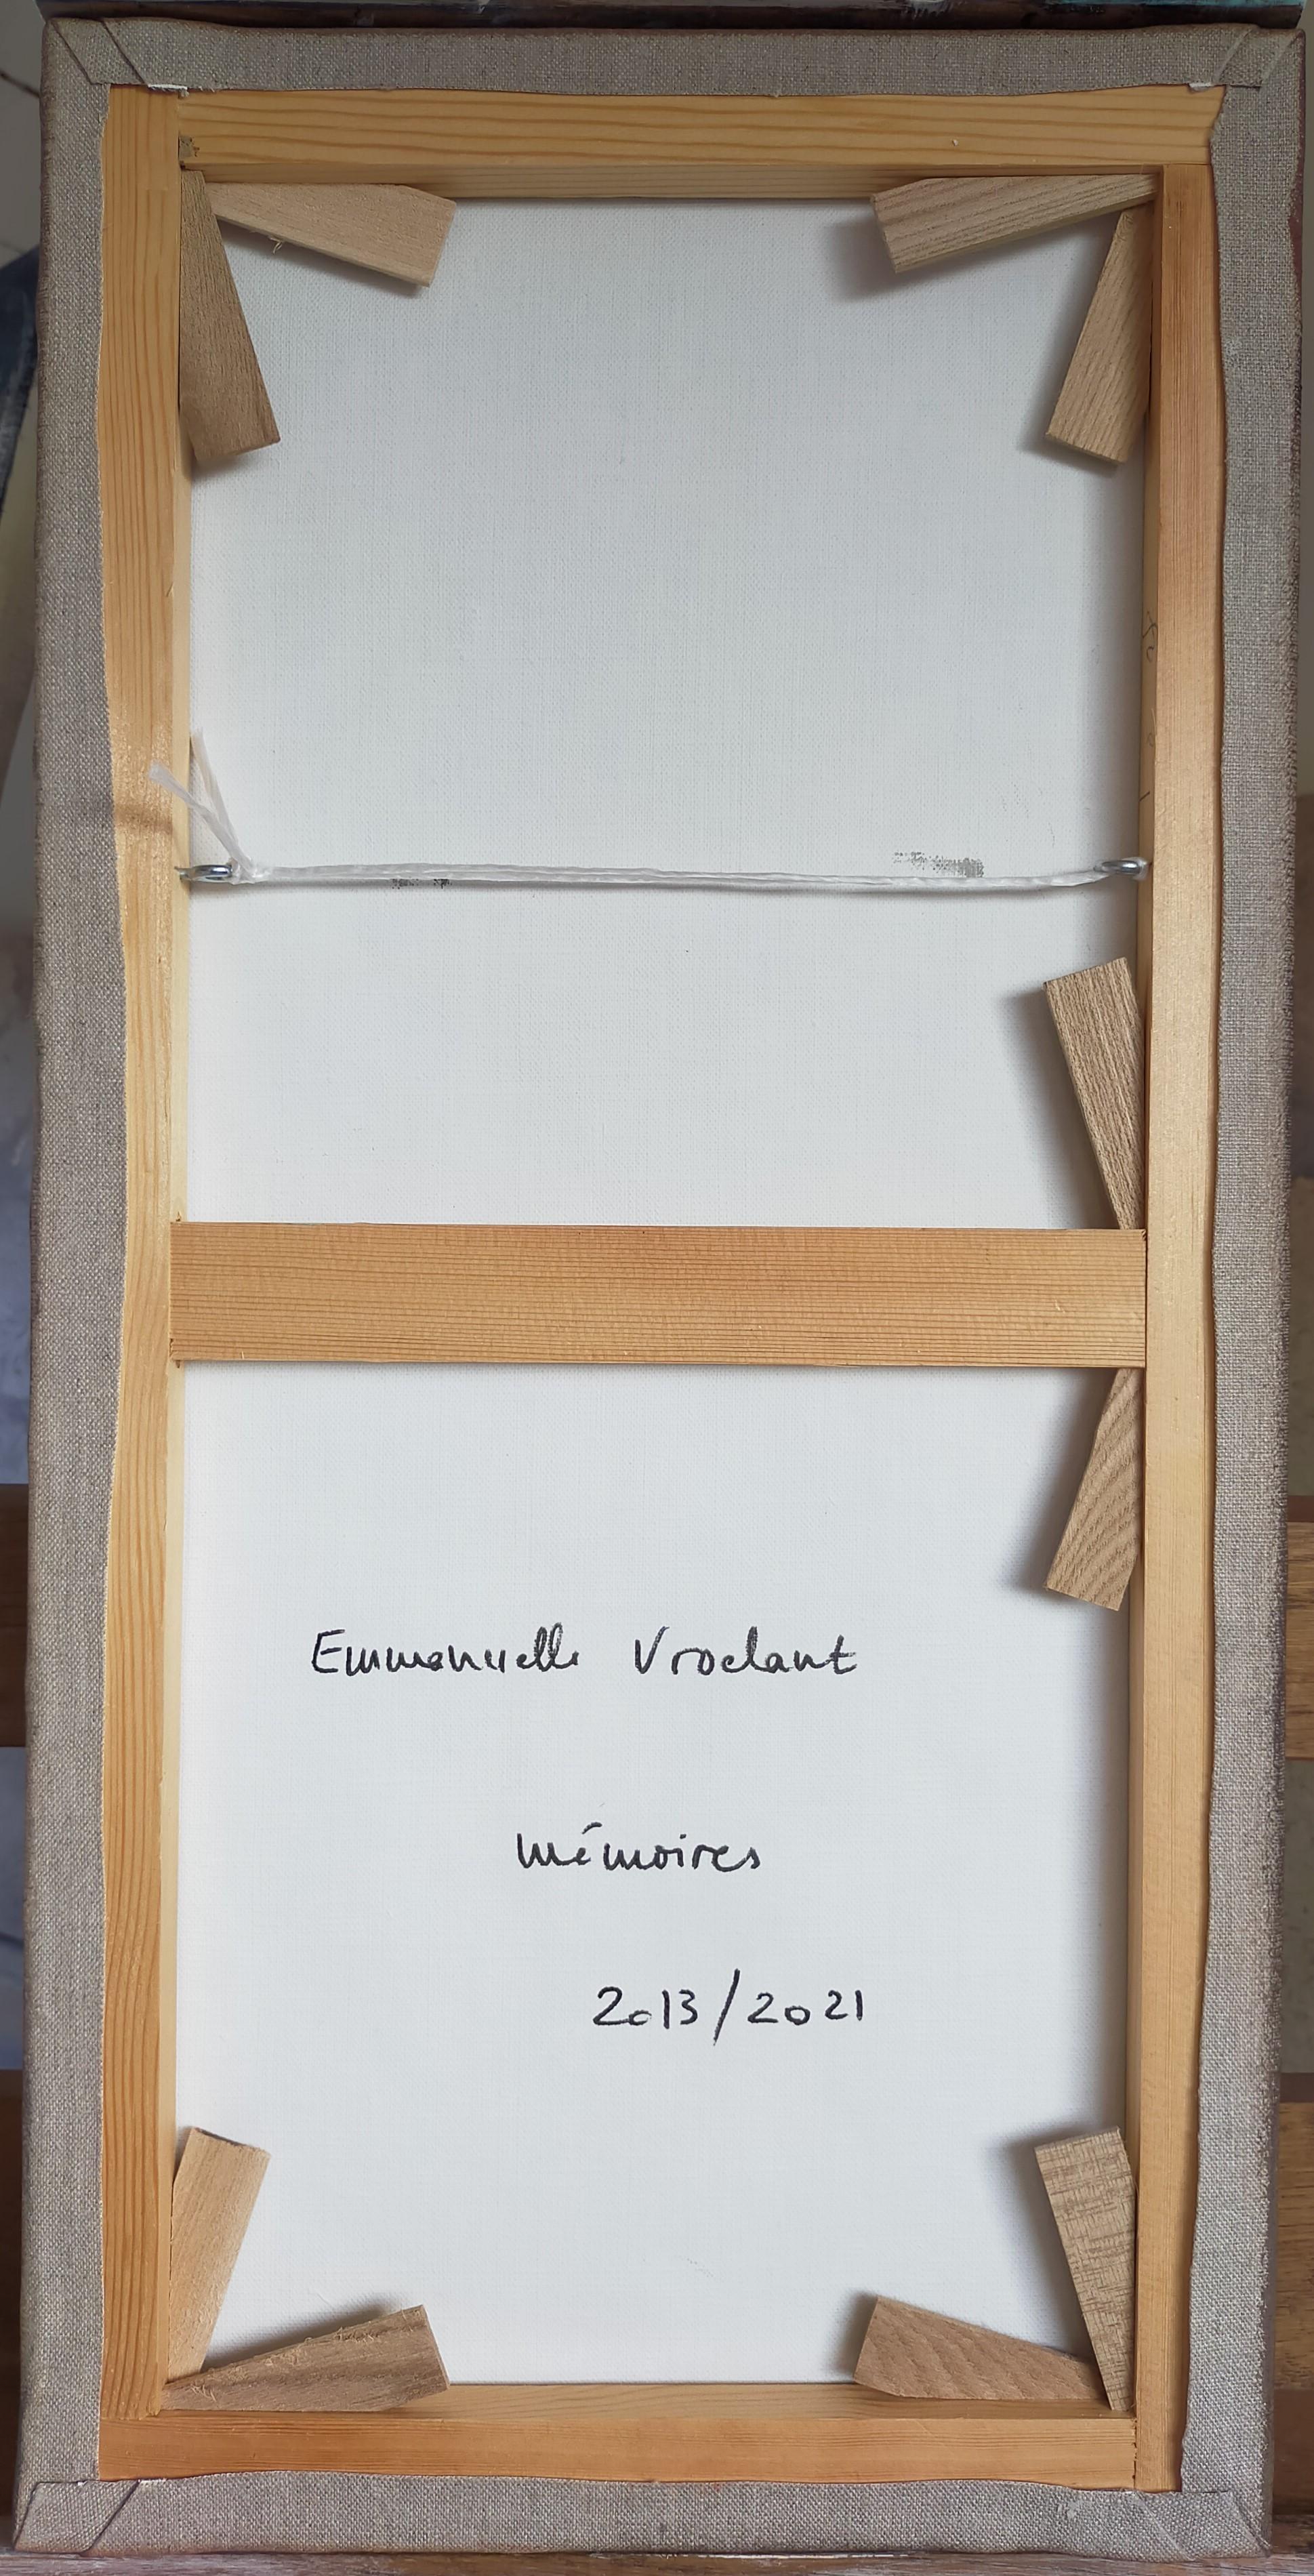 Emmanuelle Vroelant
Mémoires
2013/2021